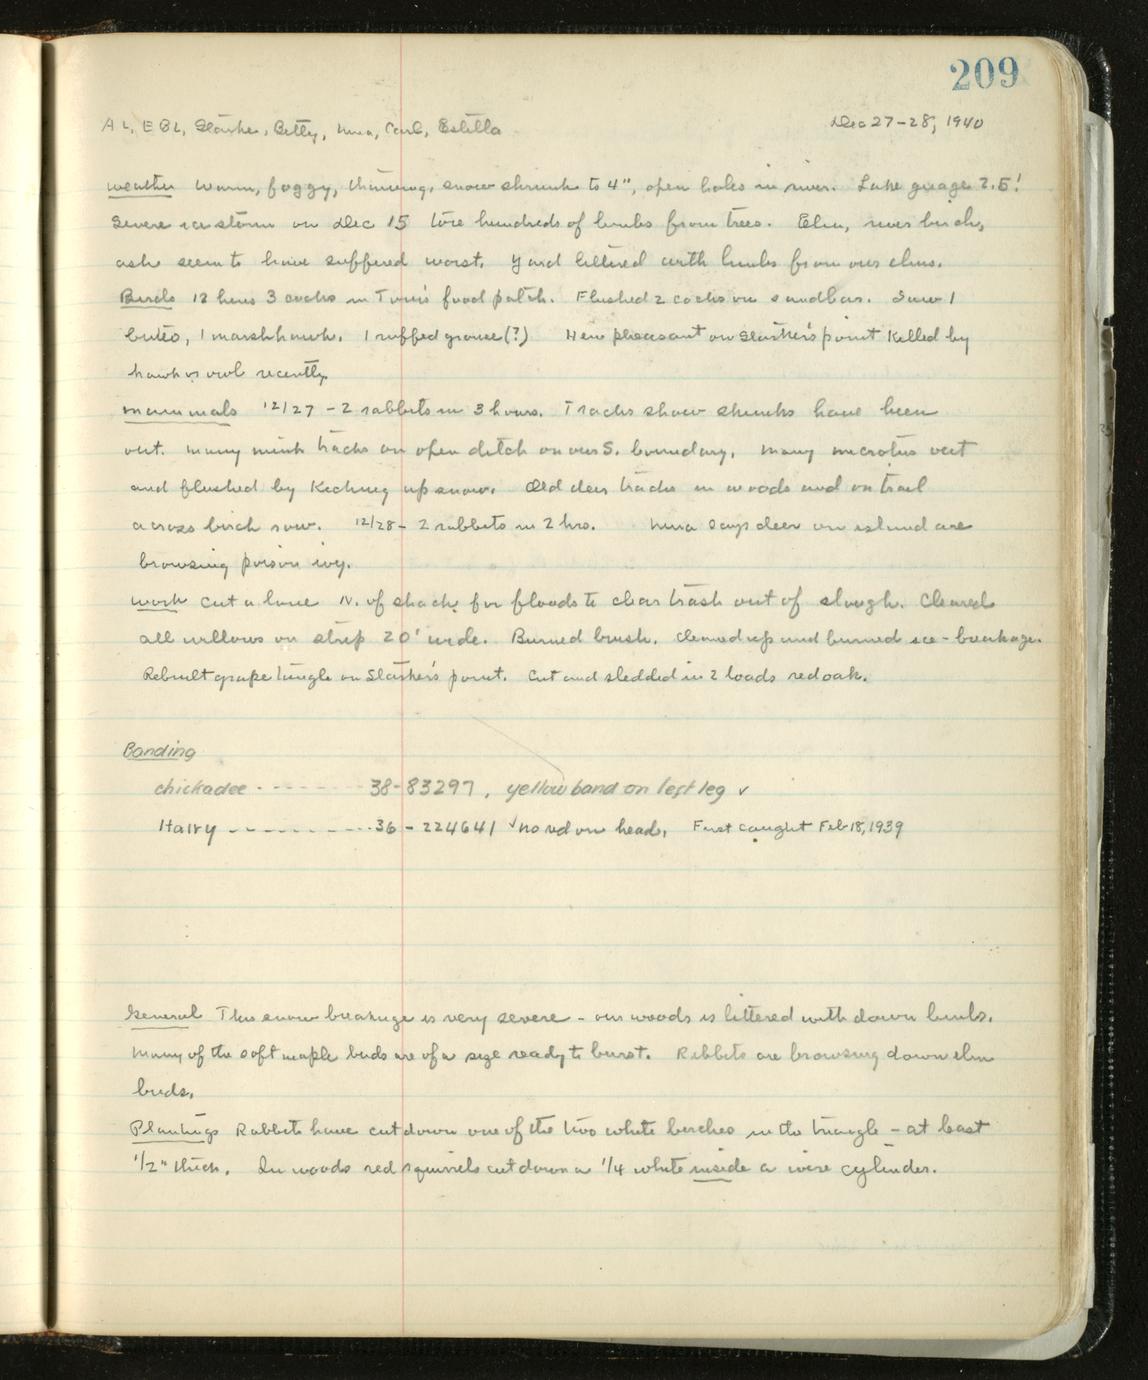 209
AL, EBL, Starker, Betty, Nina, Carl, Estella
Dec 27-28, 1940
Weather Warm, foggy, thawing, snow shrunk to 4", open holes in river. Lake guage 2.5!
Severe ice storm on Dec 15 tore hundreds of limbs from trees. Elm, river birch,
ash seem to have suffered worst. Yard littered with limbs from our elms.
Birds 12 hens 3 cocks in Tom's food patch. Flushed 2 cocks on sandbar. Saw 1
buteo, 1 marsh hawk. 1 ruffed grouse (?) Hen pheasant on Starker's point killed by
hawk or owl recently.
Mammals 12/27 - 2 rabbits in 3 hours. Tracks show skunks have been
out. Many mink tracks on open ditch on our S. boundary. Many microtus out
and flushed by kicking up snow. Old deer tracks in woods and on trail
across birch row. 12/28 - 2 rabbits in 2 hrs. Nina says deer on island are
browsing poison ivy.
Work Cut a lane N. of shack for floods to clear trash out of slough. Cleared
all willows on strip 20' wide. Burned brush. Cleaned up and burned ice-breakage.
Rebuilt grape tangle on Starker's point. Cut and sledded in 2 loads red oak.
Banding
chickadee - - - - - - 38-83297, yellow band on left leg ✓
Hairy - - - - - - - - 36-224641 ✓ no red on head, First caught Feb 18, 1939
General This snow breakage is very severe - our woods is littered with down limbs.
Many of the soft maple buds are of a size ready to burst. Rabbits are browsing down elm
buds.
Plantings Rabbits have cut down one of the two white birches in the triangle - at least
1/2" thick. In woods red squirrels cut down a 1/4 white inside a wire cylinder.